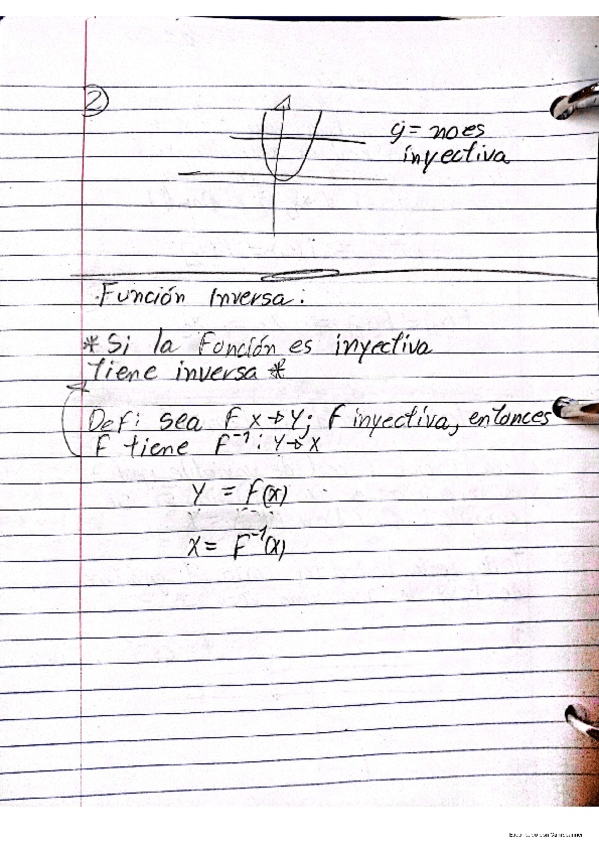 2
g = no es
inyectiva
Función Inversa:
* Si la Función es inyectiva
tiene inversa *
Def: sea F X→Y; F inyectiva, entonces
F tiene F⁻¹: Y→X
Y = F(x)
X = F⁻¹(x)